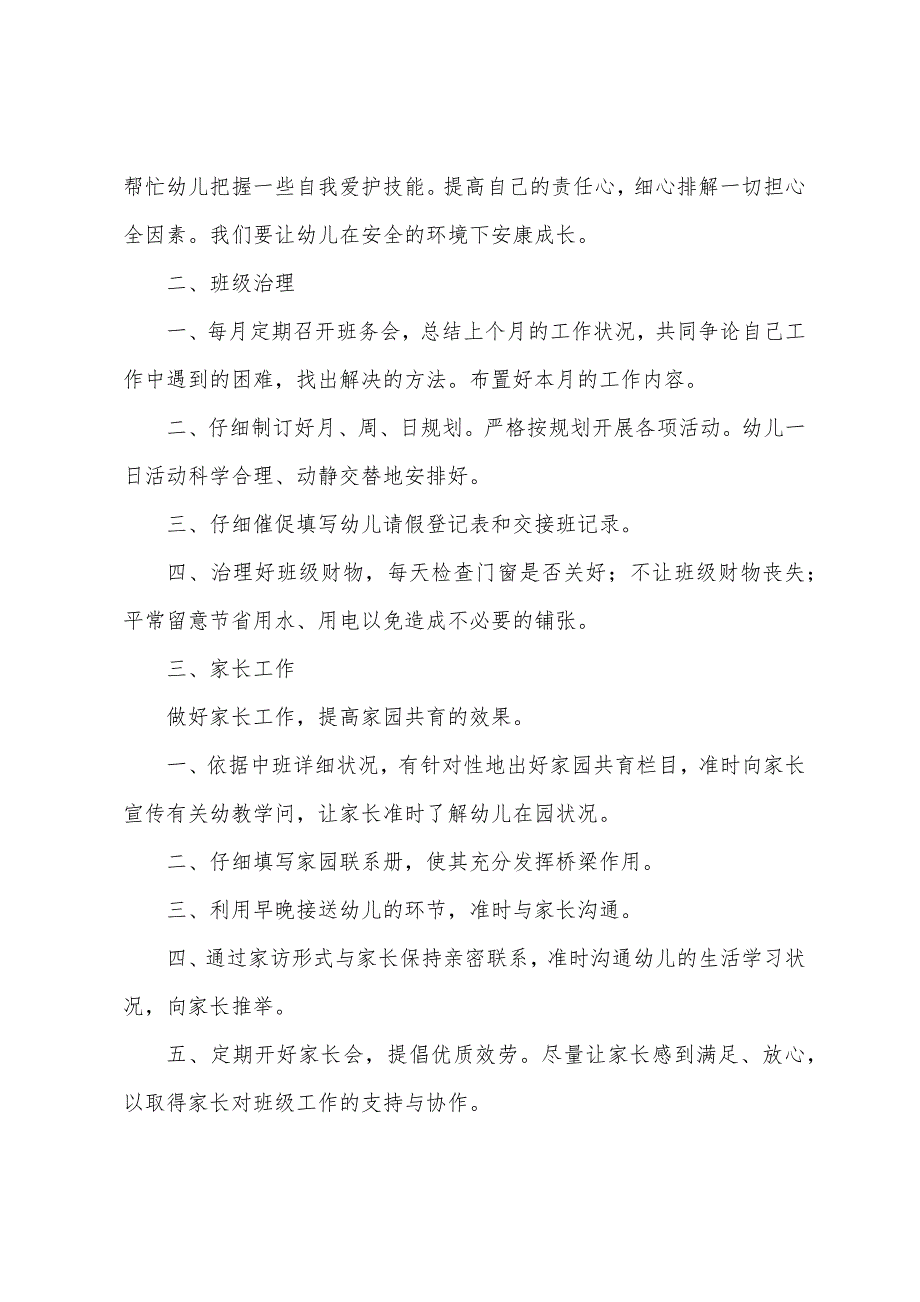 帮忙幼儿把握一些自我爱护技能。提高自己的责任心，细心排解一切担心
全因素。我们要让幼儿在安全的环境下安康成长。
二、班级治理
一、每月定期召开班务会，总结上个月的工作状况，共同争论自己工
作中遇到的困难，找出解决的方法。布置好本月的工作内容。
二、仔细制订好月、周、日规划。严格按规划开展各项活动。幼儿一
日活动科学合理、动静交替地安排好。
三、仔细催促填写幼儿请假登记表和交接班记录。
四、治理好班级财物，每天检查门窗是否关好；不让班级财物丧失；
平常留意节省用水、用电以免造成不必要的铺张。
三、家长工作
做好家长工作，提高家园共育的效果。
一、依据中班详细状况，有针对性地出好家园共育栏目，准时向家长
宣传有关幼教学问，让家长准时了解幼儿在园状况。
二、仔细填写家园联系册，使其充分发挥桥梁作用。
三、利用早晚接送幼儿的环节，准时与家长沟通。
四、通过家访形式与家长保持亲密联系，准时沟通幼儿的生活学习状
况，向家长推举。
五、定期开好家长会，提倡优质效劳。尽量让家长感到满足、放心，
以取得家长对班级工作的支持与协作。